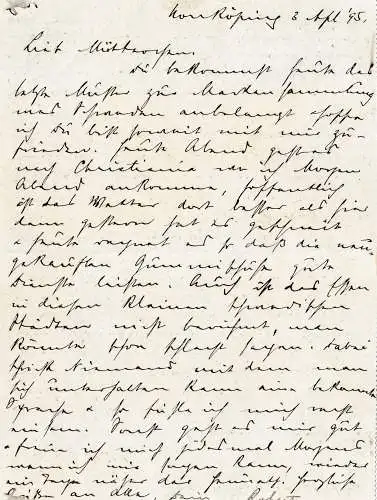 Norrköping 3 Apl '95.
Liebt Mütterchen.
Du bekommst heute das
letzte Muster zur Markensammlung
was Schweden anbelangt & hoffe
ich Du bist soweit mit mir zu-
frieden. Heute Abend geht es
nach Christiania wo ich Morgen
Abend ankomme, hoffentlich
ist das Wetter dort besser als hier
denn gestern hat es geschneit
& heute regnet es so daß die neu-
gekauften Gummischuhe gute
Dienste leisten. Auch ist das Essen
in diesen kleinen schwedischen
Städten nicht berühmt, man
könnte schon schlecht sagen. Dabei
ist Niemand mit dem man
sich unterhalten kann eine bekannte
Sprache & so fühle ich mich recht
einsam. Sonst geht es mir gut
& freue ich mich jedesmal Morgens
wenn ich mir sagen kann, wieder
ein Tag näher das
an alle, Dein